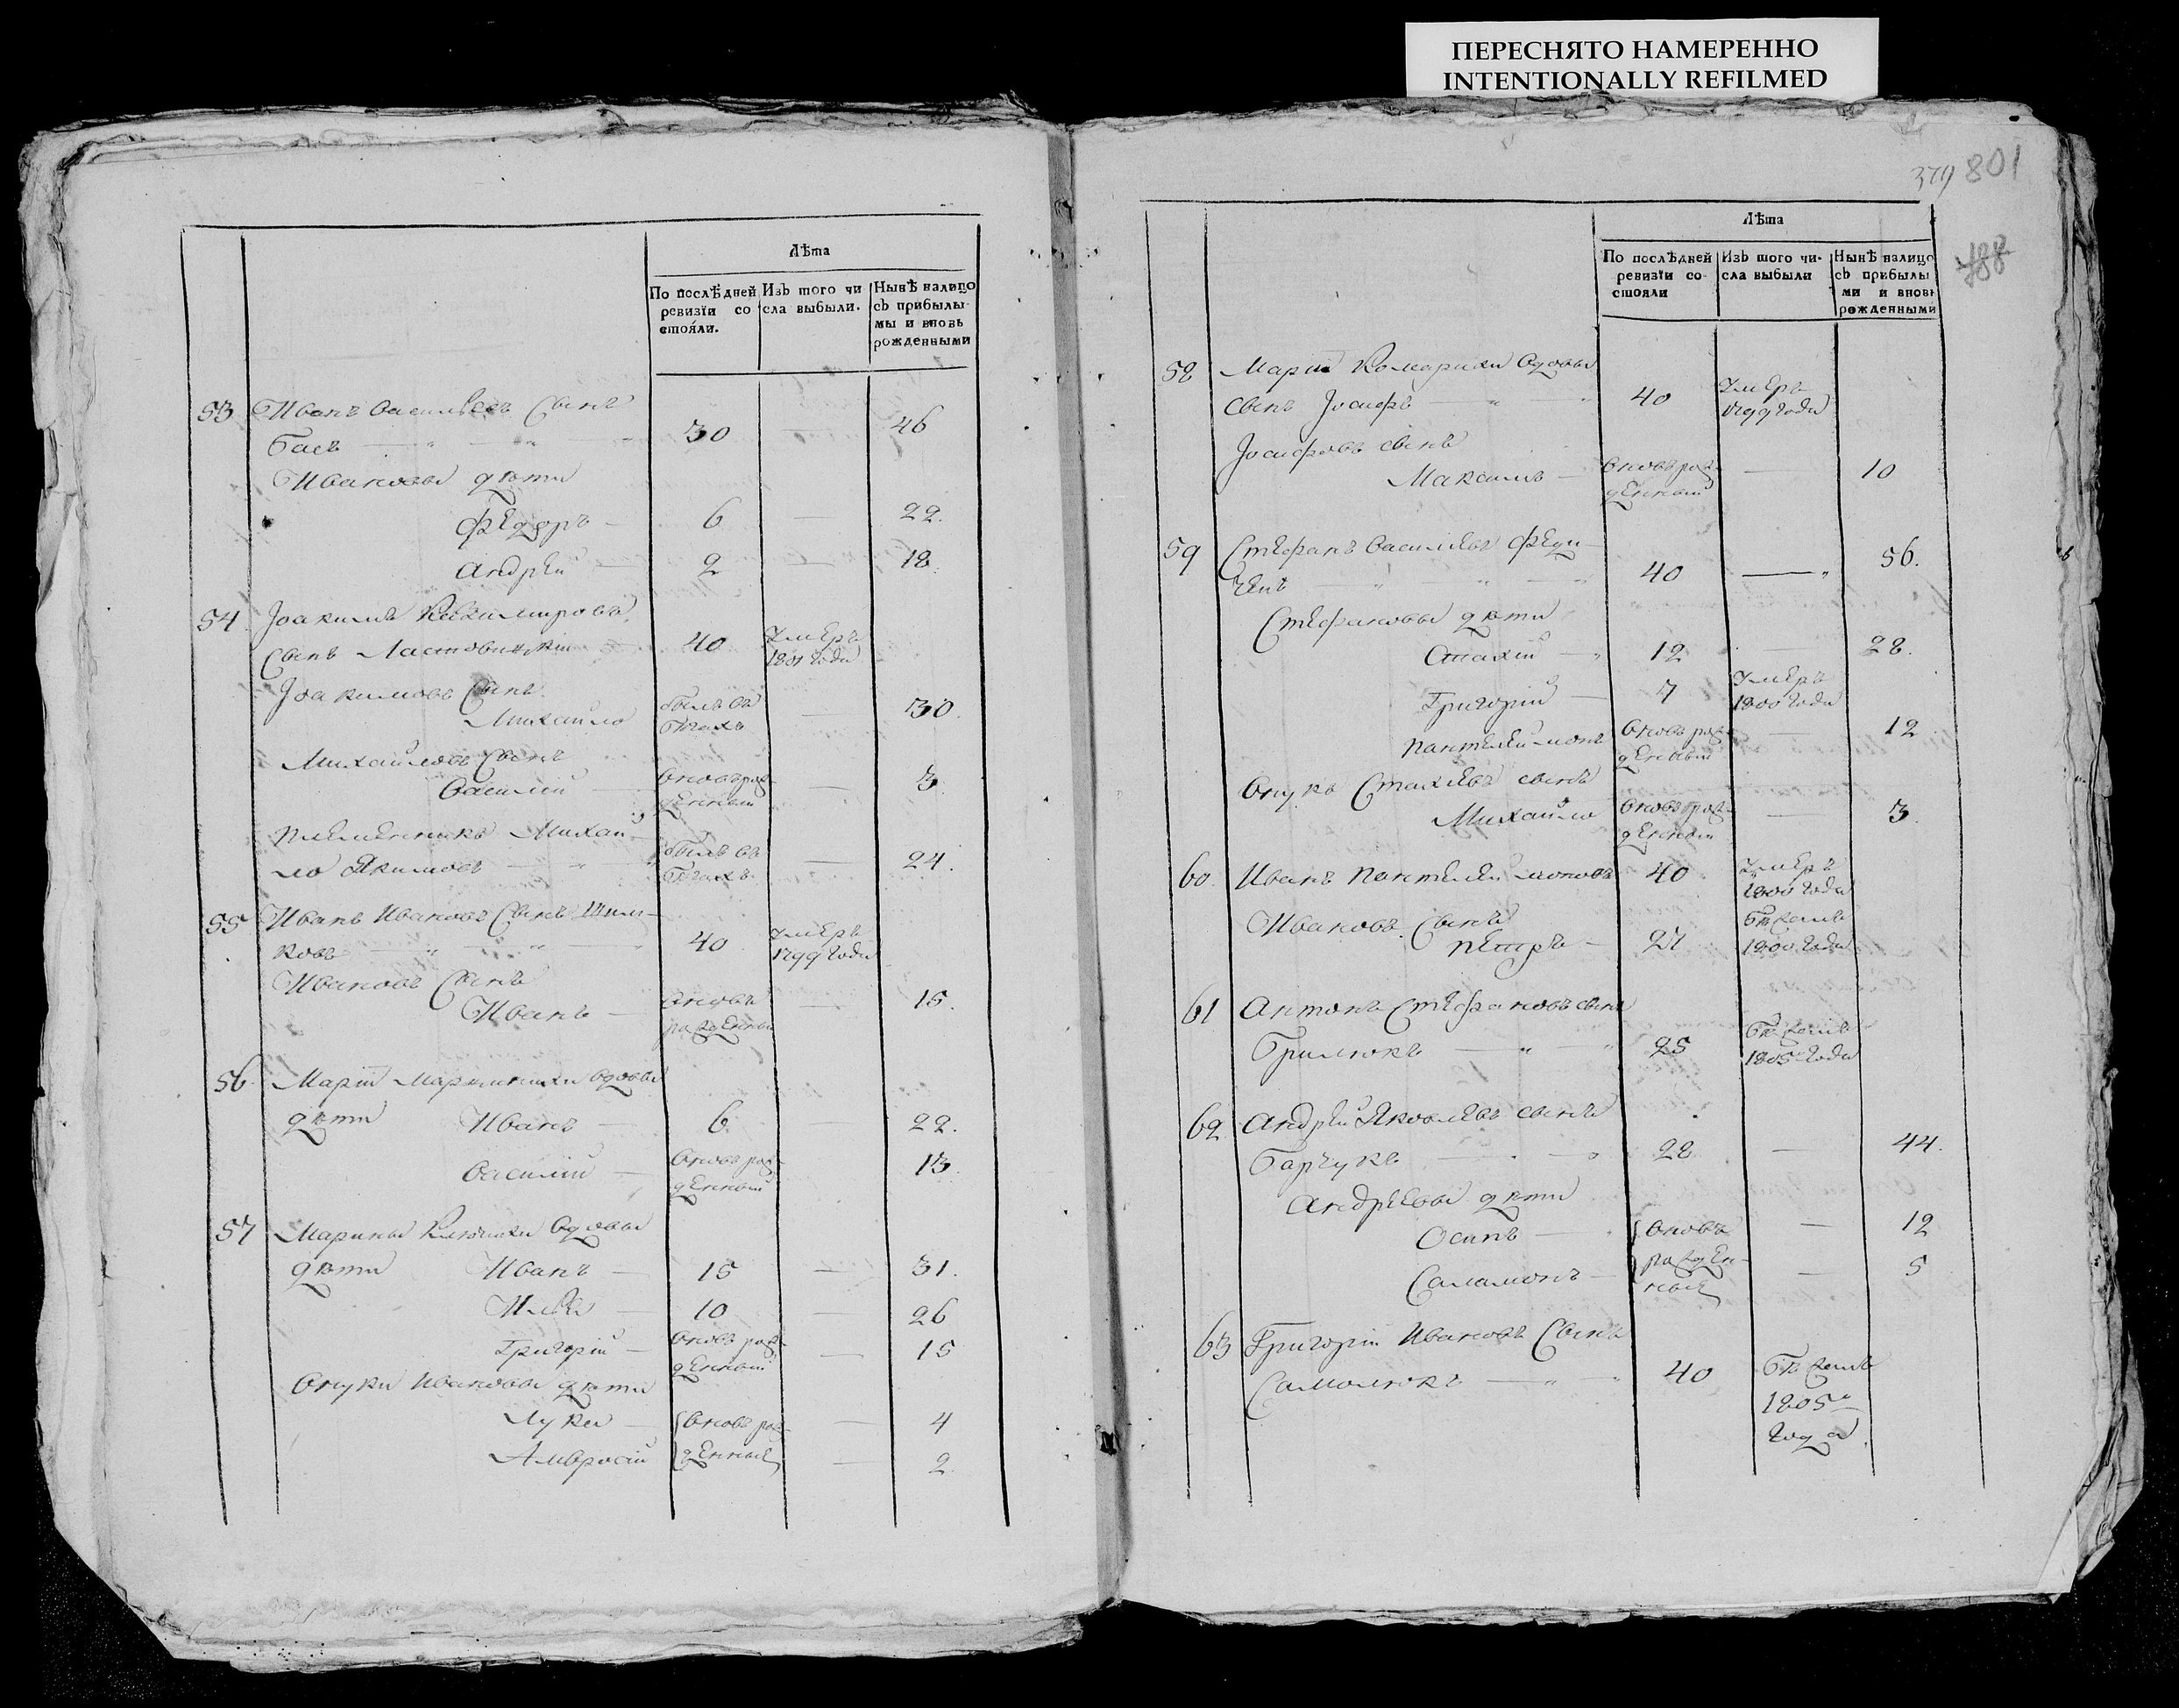 ПЕРЕСНЯТО НАМЕРЕННО
INTENTIONALLY REFILMED
Лѣта
По послѣдней ревизїи со стояли.
Изъ того чи сла выбыли.
Нынѣ налицо съ прибылы мы и вновь рожденными
53 Иванъ Васильевъ Сынъ
Баевъ 30 — 46
Ивановы дѣти
Федоръ 6 — 22.
Андрей 2 — 18.
54 Іоакимъ
Сынъ 40 Умеръ 1801 года
Іоакимовъ Сынъ
Михайло былъ въ бегахъ — 30.
Михайловъ Сынъ
Василій вновь рожденный — 3.
племенникъ Михай
ло Якимовъ былъ въ бегахъ — 24.
55 Иванъ Ивановъ Сынъ
ковъ 40 Умеръ 1799 года
Ивановъ Сынъ
Иванъ вновь рожденный — 15.
56 Маріи вдовы
дѣти Иванъ 6 — 22.
Василій вновь рожденный — 13.
57 Марины вдовы
дѣти Иванъ 15 — 31.
Илья 10 — 26
Григорій вновь рожденный — 15
внуки Ивановы дѣти
Лука вновь рож — 4
Амвросій денные — 2.
379 801
488
Лѣта
По послѣдней ревизїи со стояли
Изъ того чи сла выбыли
Нынѣ налицо съ прибылы ми и вновь рожденными
58 Маріи Комарихи вдовы
сынъ Іосифъ 40 Умеръ 1799 года
Іосифовъ сынъ
Максимъ вновь рожденный — 10
59 Стефанъ Васильевъ
40 — 56.
Стефановы дѣти
Стахій 12 — 28.
Григорій 7 Умеръ 1800 года
пантелеймонъ вновь рожденный — 12
внукъ Стахіевъ сынъ
Михайло вновь рожденный — 3.
60. Иванъ пантелеймоновъ 40 Умеръ 1800 года
Ивановъ Сынъ
петръ 27 бѣжалъ 1800 года
61 Антонъ Стефановъ сынъ
25 бѣжалъ 1805 года
62 Андрей Яковлевъ сынъ
Барчукъ 28 — 44.
Андреевы дѣти
Осипъ вновь — 12
Саламонъ рожденные — 5
63 Григорій Ивановъ Сынъ
Самолюкъ 40 бѣжалъ
1805го
года